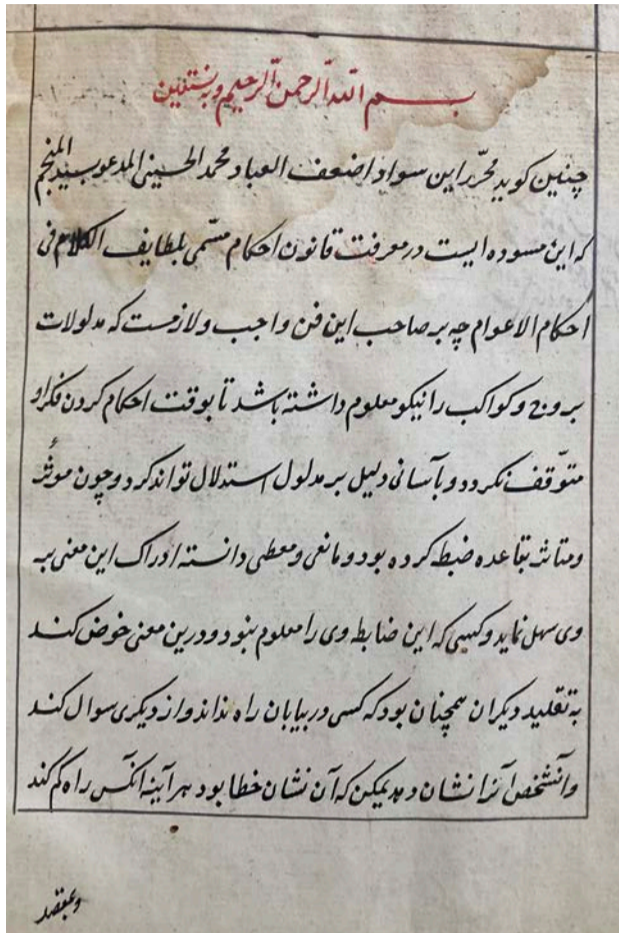 بسم الله الرحمن الرحیم وبه نستعین
چنین کوید محرّر این سواد اضعف العباد محمد الحسینی المدعو بسید المنجم
که این مسوده ایست در معرفت قانون احکام مسمّی بلطایف الکلام فی
احکام الاعوام چه بر صاحب این فن واجب و لازمست که مدلولات
بروج و کواکب را نیکو معلوم داشته باشد تا بوقت احکام کردن فکر او
متوقّف نکردد و بآسانی دلیل بر مدلول استدلال تواند کرد و چون موثر
و متاثر بقاعده ضبط کرده بود و مانعی و معطی دانسته ادراک این معنی به
وی سهل نماید و کسی که این ضابط وی را معلوم نبود و درین معنی خوض کند
به تقلید دیکران همچنان بود که کسی در بیابان راه نداند و از دیکری سوال کند
و آنشخص آنرا نشان دهد یمکن که آن نشان خطا بود هر آینه آنکس راه کم کند
وبمقصد